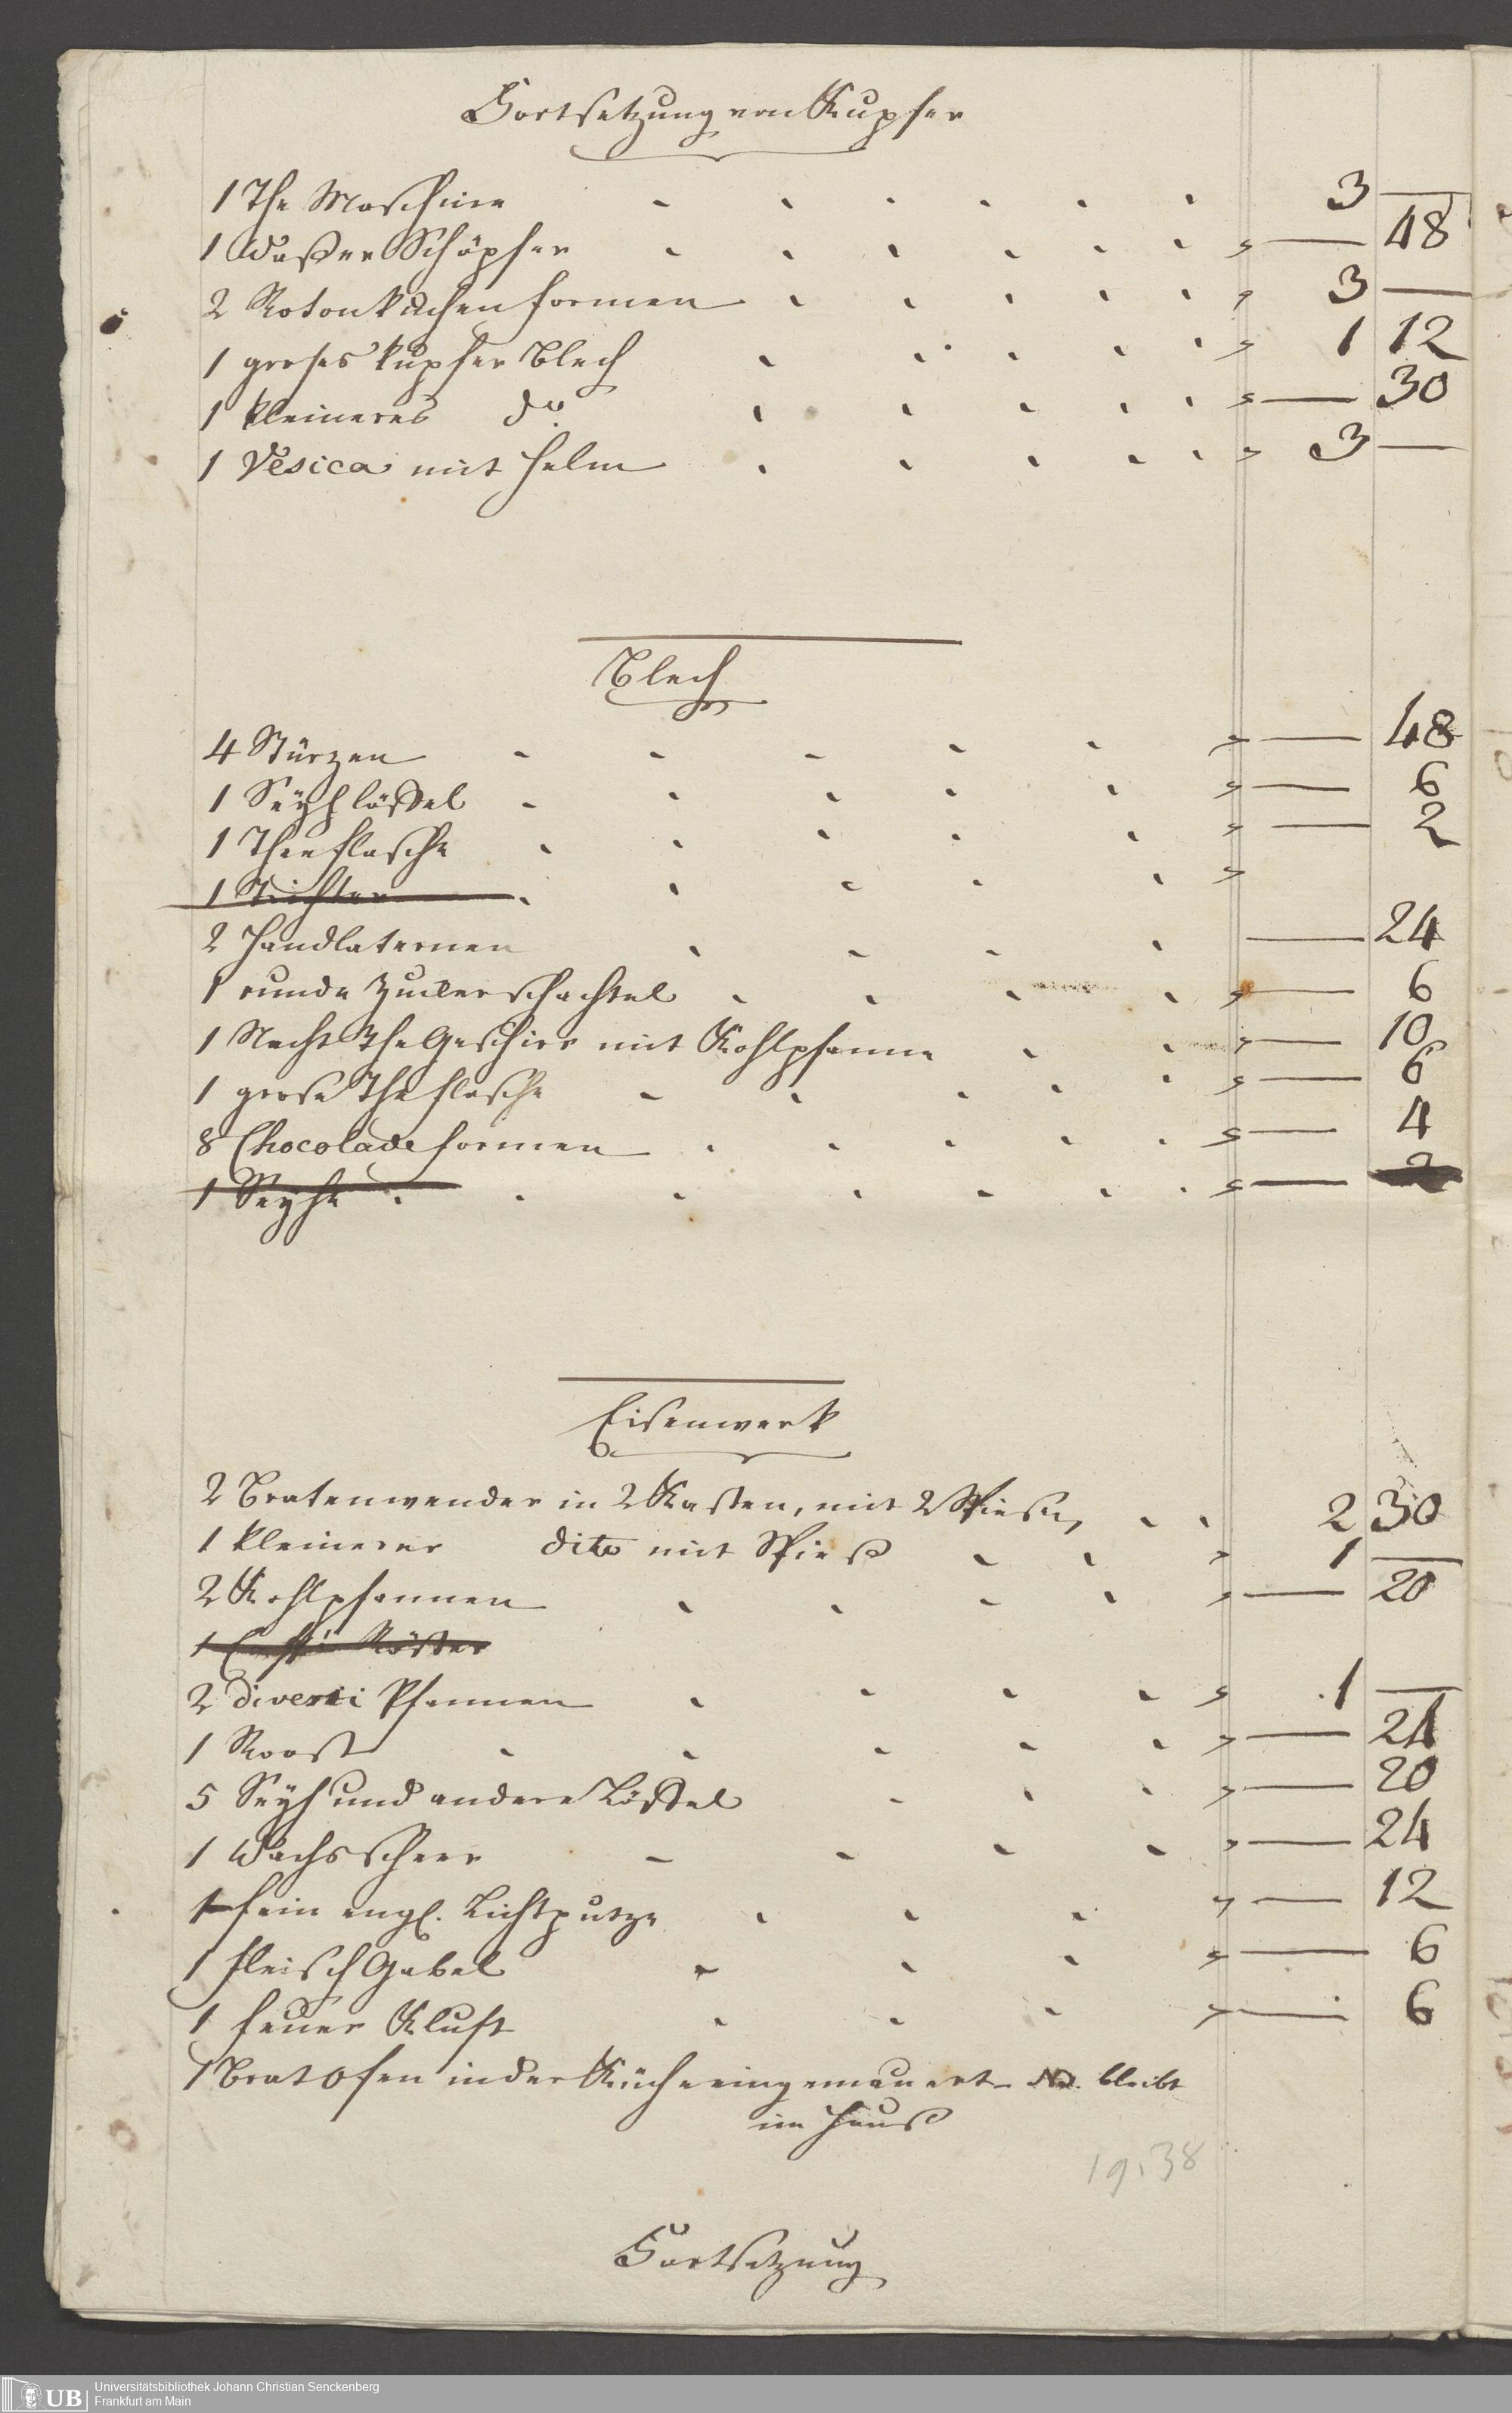 Fortsetzung von Kupfer
1 The Maschine 3 —
1 Waßer Schöpfer — 48
2 Rotonkuchen formen 3 —
1 groses kupfer Blech 1 12
1 kleineres do. — 30
1 Vesica mit Helm 3 —
Blech
4 Stürzen — 48
1 Seyhlößel — 6
1 Theeflasche — 2
1 Trichter
2 Handlaternen — 24
1 runde Zuckerschachtel — 6
1 Nacht The Geschirr mit Kohlpfanne — 10
1 grose The flasche — 6
8 Chocolade formen — 4
1 Seyhe — 2
Eisenwerk
2 Bratenwender in 2 Kasten, mit 2 Spiesen, 2 30
1 kleinerer dito mit Spieß 1 —
2 Kohlpfannen — 20
1 Röster
2 diverse Pfannen 1 —
1 Roost — 24
5 Seyh und andere Lößel — 20
1 Wachsscheer — 24
1 fein engl. Lichtputze — 12
1 fleisch Gabel — 6
1 feuer Kluft — 6
1 Brat Ofen in der Küche eingemauert - NB. bleibt
im Hauß
19.38
Fortsetzung
UB Universitätsbibliothek Johann Christian Senckenberg
Frankfurt am Main